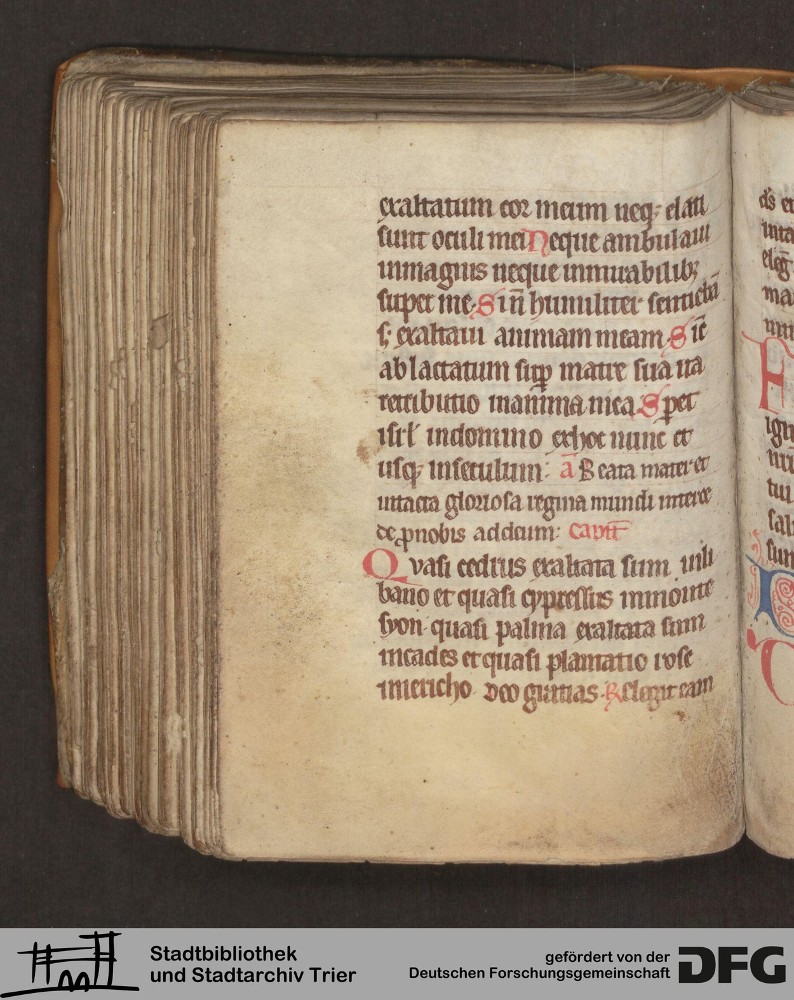 exaltatum cor meum neq; elati
sunt oculi mei Neque ambulaui
inmagnis neque inmirabilib;
super me. Si n̄ humiliter sentiebā
s; exaltaui animam meam. Sic̄
ablactatum sup̄ matre sua ita
retributio in anima mea. Speret
isrl' indomino exhoc nunc et
usq; inseculum: ā Beata mater et
intacta gloriosa regina mundi interce
de pro nobis addeum: capit̄
Quasi cedrus exaltata sum inli
bano et quasi cypressus inmonte
syon. quasi palma exaltata sum
incades et quasi plantatio rose
iniericho. Deo gratias. R Elegit eam
Stadtbibliothek
und Stadtarchiv Trier
gefördert von der
Deutschen Forschungsgemeinschaft
DFG